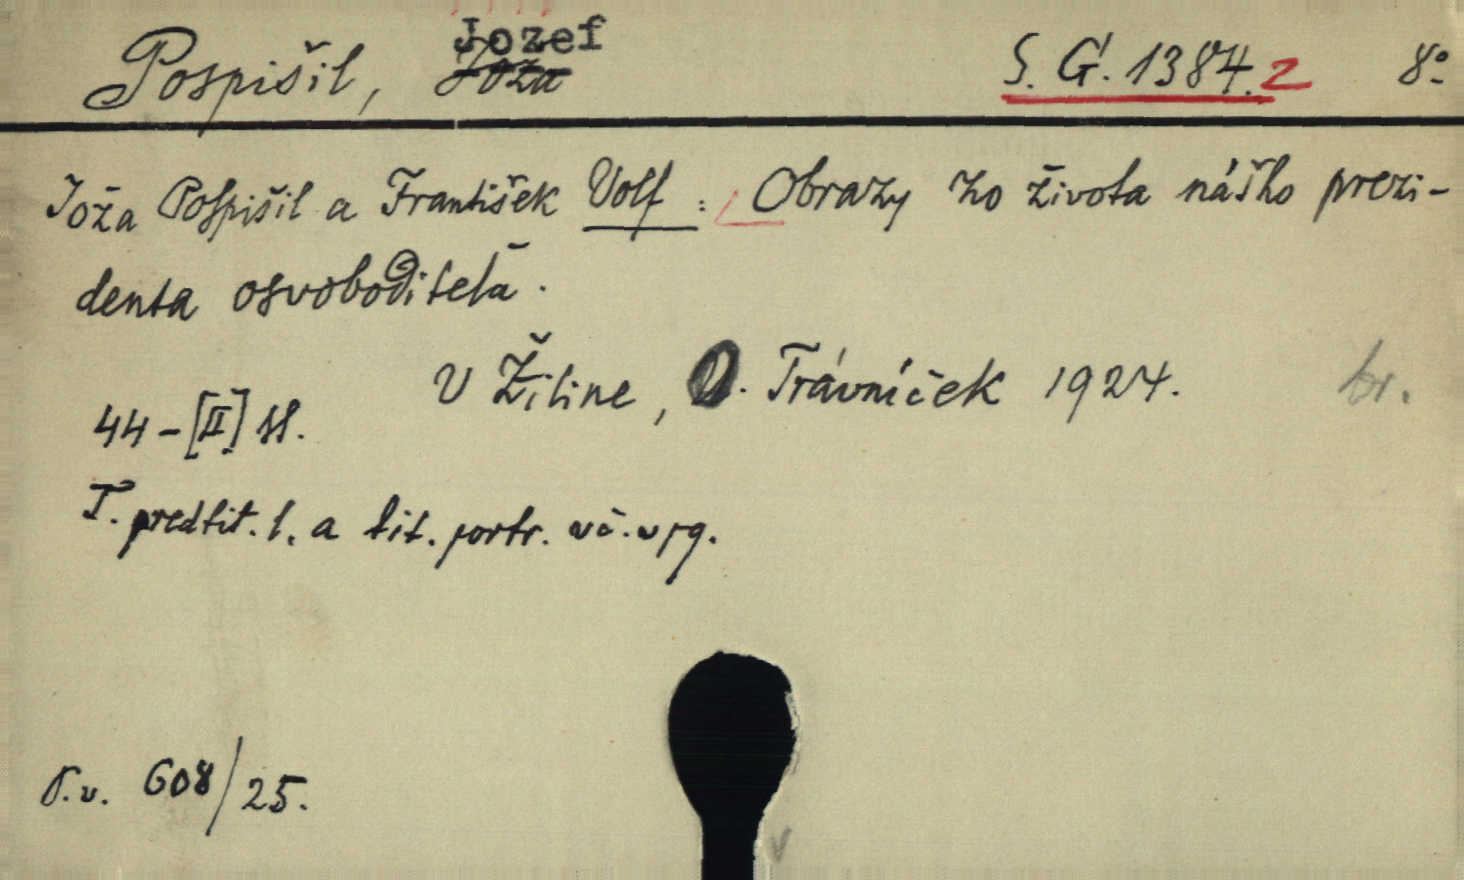 Pospišil, Jozef Joža S. G. 1384.2 8°
Joža Pospišil a František Volf : Obrazy zo života nášho prezi-
denta osvoboditeľa.
V Žiline, O. Trávníček 1924. br.
44-[II] ss.
T. predtit. l. a tit. portr. vč. v pg.
608/25.